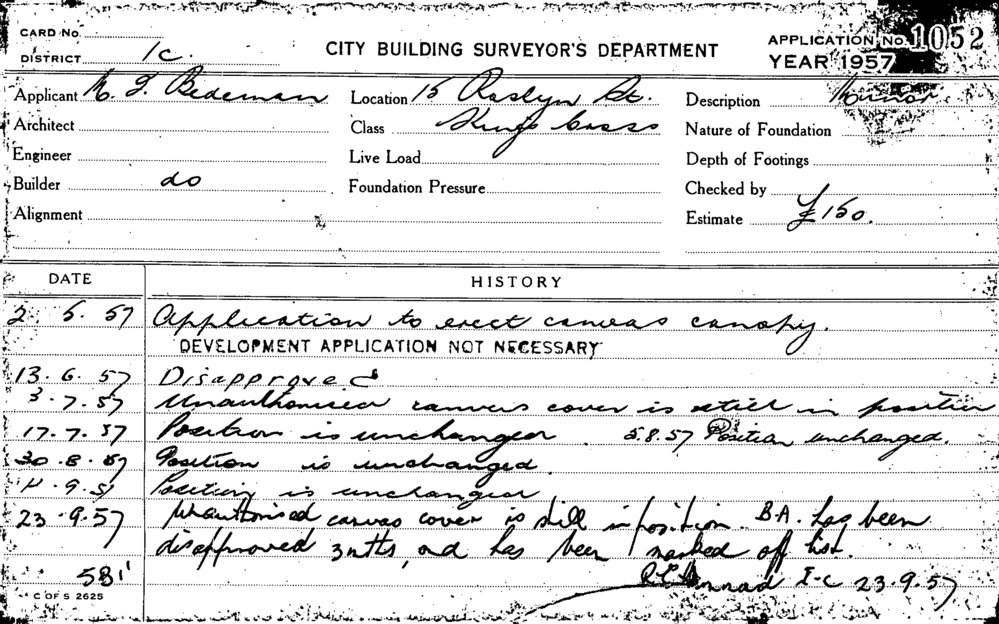 CARD No.
DISTRICT 1c
CITY BUILDING SURVEYOR'S DEPARTMENT
APPLICATION No. 1052
YEAR 1957
Applicant Bedeman
Location 15 Roslyn St.
Description Minor
Architect
Class Kings Cross
Nature of Foundation
Engineer
Live Load
Depth of Footings
Builder do
Foundation Pressure
Checked by
Alignment
Estimate £150.
DATE
HISTORY
2. 5. 57 Application to erect canvas canopy.
DEVELOPMENT APPLICATION NOT NECESSARY
13. 6. 57 Disapproved
3. 7. 57 Unauthorised canvas cover is still in position
17. 7. 57 Position is unchanged 5.8.57 Position unchanged.
30. 8. 57 Position is unchanged.
9. 57 Position is unchanged
23. 9. 57 Unauthorised canvas cover is still in position. B.A. has been
disapproved 3 mths, and has been marked off list.
581
C OF S 2625
23.9.57